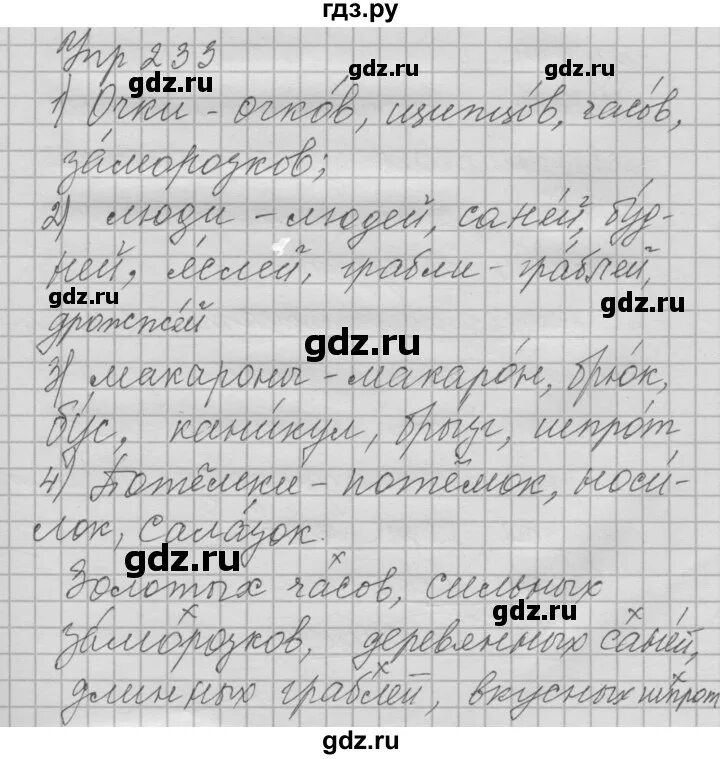 гдз.ру
Упр 233
gdz.ru gdz.ru gdz.ru
1) Очки - очко́в, щипцо́в, часо́в,
за́морозков;
2) люди - людей, сане́й, бу́д-
ней, я́слей, грабли - гра́блей,
gdz.ru gdz.ru
дрожже́й
gdz.ru
3) макароны - макаро́н, брю́к,
бу́с, кани́кул, бры́зг, шпро́т
4) Потёмки - потёмок, носи́-
лок, сала́зок.
gdz.ru
Золотых часов, сильных
gdz.ru
за́морозков, деревянных сане́й,
длинных граблей, вкусных шпрот
gdz.ru